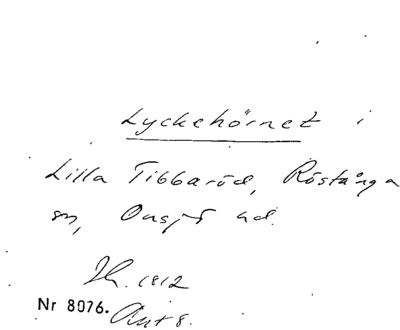 Lyckehörnet i
Lilla Tibbaröd, Röstånga
sn, Onsjö hd.
1812
Nr 8076. Akt 8.